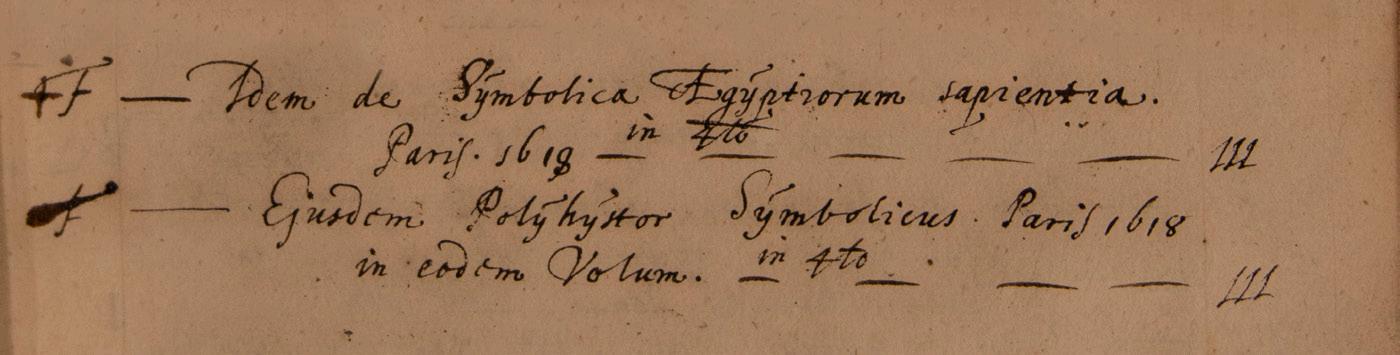 Idem de Sÿmbolica Ægÿptiorum sapientia.
Paris. 1618 — in 4to — — — — III
— Ejusdem Polÿhÿstor Sÿmbolicus. Paris 1618
in eodem Volum. — in 4to — — — III